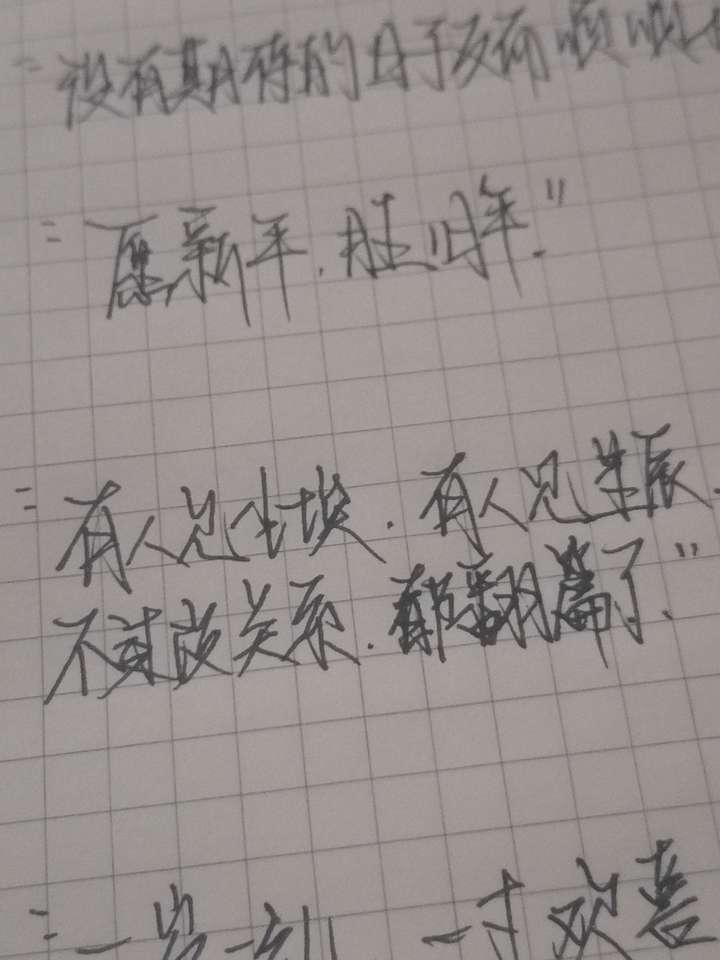 “没有期待的日子反而顺顺
“愿新年，胜旧年。”
“有人见尘埃，有人见星辰，
不过没关系，都翻篇了。”
“一岁一礼 一寸欢喜